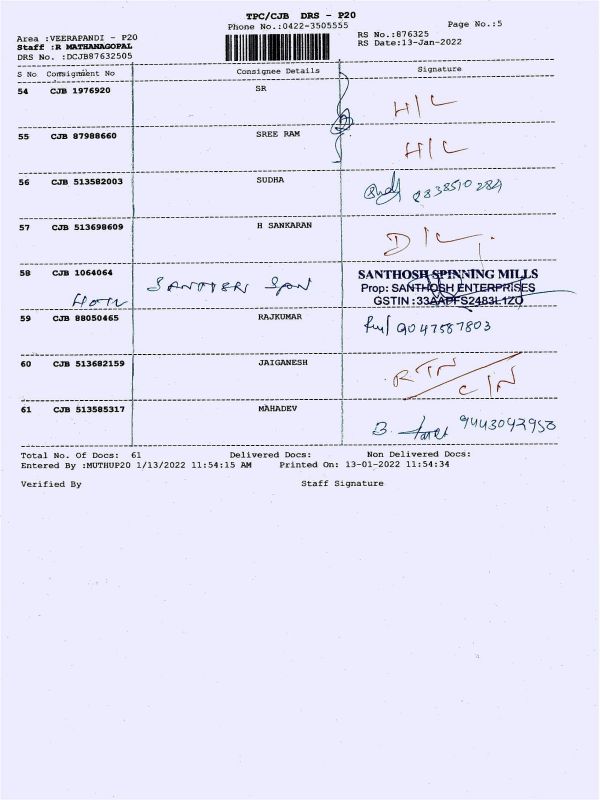 TPC/CJB DRS - P20
Phone No.:0422-3505555
Page No.:5
Area :VEERAPANDI - P20
RS No.:876325
Staff :R MATHANAGOPAL
RS Date:13-Jan-2022
DRS No. :DCJB87632505
S No Consignment No Consignee Details Signature
54 CJB 1976920 SR H/L
55 CJB 87988660 SREE RAM H/L
56 CJB 513582003 SUDHA 9838510284
57 CJB 513698609 H SANKARAN D/L.
58 CJB 1064064 SANTHOSH SPINNING MILLS
Prop: SANTHOSH ENTERPRISES
GSTIN :33AAPFS2483L1ZO
59 CJB 88050465 RAJKUMAR 9047587803
60 CJB 513682159 JAIGANESH RTN
C/N
61 CJB 513585317 MAHADEV B. 9443042958
Total No. Of Docs: 61 Delivered Docs: Non Delivered Docs:
Entered By :MUTHUP20 1/13/2022 11:54:15 AM Printed On: 13-01-2022 11:54:34
Verified By Staff Signature